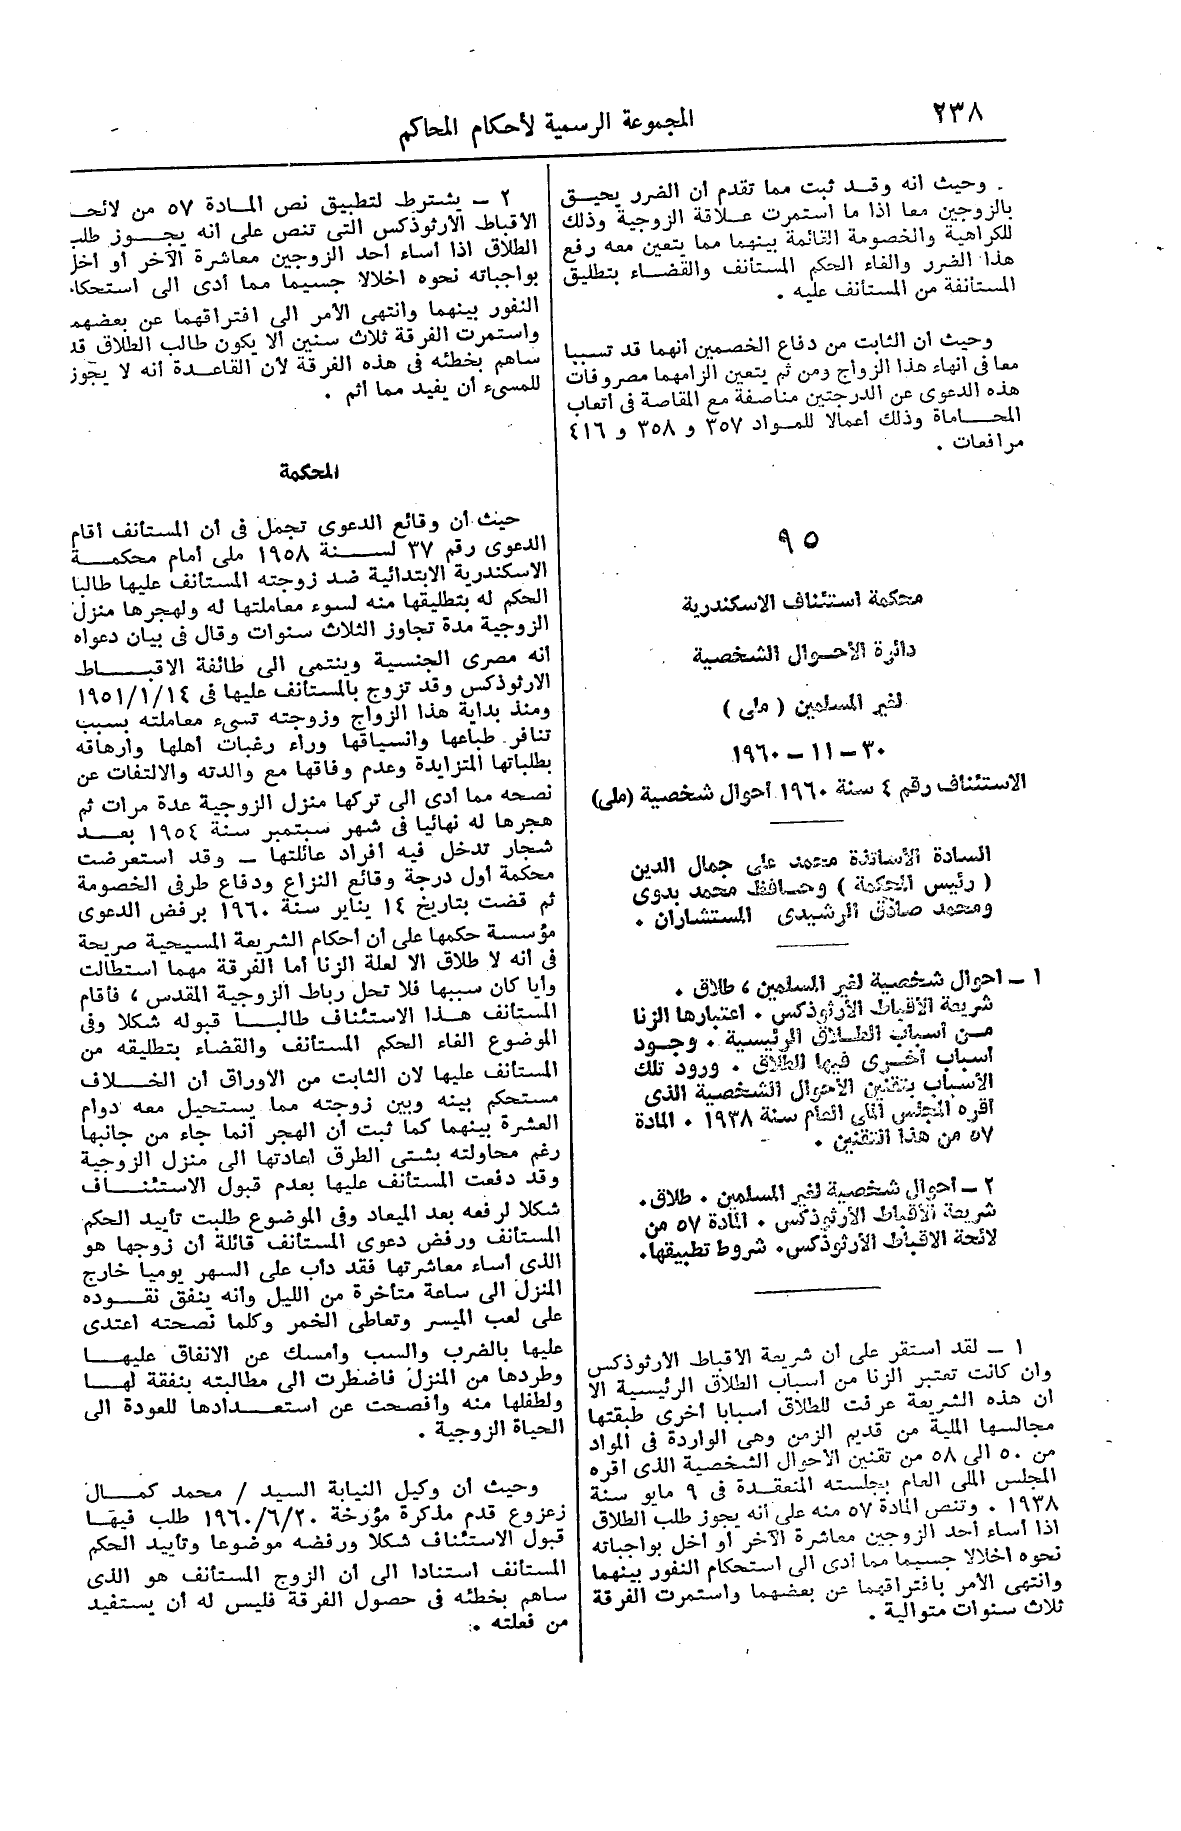 ٢٣٨
المجموعة الرسمية لأحكام المحاكم
وحيث أنه وقد ثبت مما تقدم أن الضرر يحيق
بالزوجين معا اذا ما استمرت علاقة الزوجية وذلك
للكراهية والخصومة القائمة بينهما مما يتعين معه رفع
هذا الضرر والغاء الحكم المستأنف والقضاء بتطليق
المستأنفة من المستأنف عليه .
وحيث أن الثابت من دفاع الخصمين أنهما قد تسببا
معا فى انهاء هذا الزواج ومن ثم يتعين الزامهما مصروفات
هذه الدعوى عن الدرجتين مناصفة مع المقاصة فى أتعاب
المحاماة وذلك أعمالا للمواد ٣٥٧ و ٣٥٨ و ٤١٦
مرافعات .
٩٥
محكمة استئناف الاسكندرية
دائرة الأحوال الشخصية
لغير المسلمين ( ملى )
٣٠ – ١١ – ١٩٦٠
الاستئناف رقم ٤ سنة ١٩٦٠ أحوال شخصية (ملى)
السادة الأساتذة محمد على جمال الدين
( رئيس المحكمة ) وحافظ محمد بدوى
ومحمد صادق الرشيدى المستشاران .
١ – احوال شخصية لغير المسلمين ، طلاق .
شريعة الأقباط الأرثوذكس . اعتبارها الزنا
من أسباب الطلاق الرئيسية . وجود
أسباب أخرى فيها الطلاق . ورود تلك
الأسباب بتقنين الأحوال الشخصية الذى
أقره المجلس الملى العام سنة ١٩٣٨ . المادة
٥٧ من هذا التقنين .
٢ – أحوال شخصية لغير المسلمين . طلاق.
شريعة الأقباط الأرثوذكس . المادة ٥٧ من
لائحة الاقباط الأرثوذكس. شروط تطبيقها.
١ – لقد استقر على أن شريعة الأقباط الأرثوذكس
وان كانت تعتبر الزنا من أسباب الطلاق الرئيسية الا
ان هذه الشريعة عرفت للطلاق أسبابا أخرى طبقتها
مجالسها الملية من قديم الزمن وهى الواردة فى المواد
من ٥٠ الى ٥٨ من تقنين الأحوال الشخصية الذى أقره
المجلس الملى العام بجلسته المنعقدة فى ٩ مايو سنة
١٩٣٨ . وتنص المادة ٥٧ منه على أنه يجوز طلب الطلاق
اذا أساء أحد الزوجين معاشرة الآخر أو أخل بواجباته
نحوه اخلالا جسيما مما أدى الى استحكام النفور بينهما
وانتهى الأمر بافتراقهما عن بعضهما واستمرت الفرقة
ثلاث سنوات متوالية .
٢ – يشترط لتطبيق نص المادة ٥٧ من لائحـ
الأقباط الأرثوذكس التى تنص على أنه يجوز طلب
الطلاق اذا أساء أحد الزوجين معاشرة الآخر أو أخل
بواجباته نحوه اخلالا جسيما مما أدى الى استحكام
النفور بينهما وانتهى الأمر الى افتراقهما عن بعضهم
واستمرت الفرقة ثلاث سنين ألا يكون طالب الطلاق قد
ساهم بخطئه فى هذه الفرقة لأن القاعدة أنه لا يجوز
للمسىء أن يفيد مما أثم .
المحكمة
حيث أن وقائع الدعوى تجمل فى أن المستأنف أقام
الدعوى رقم ٣٧ لسنة ١٩٥٨ ملى أمام محكمة
الاسكندرية الابتدائية ضد زوجته المستأنف عليها طالبا
الحكم له بتطليقها منه لسوء معاملتها له ولهجرها منزل
الزوجية مدة تجاوز الثلاث سنوات وقال فى بيان دعواه
أنه مصرى الجنسية وينتمى الى طائفة الاقباط
الارثوذكس وقد تزوج بالمستأنف عليها فى ١٩٥١/١/١٤
ومنذ بداية هذا الزواج وزوجته تسىء معاملته بسبب
تنافر طباعها وانسياقها وراء رغبات أهلها وارهاقه
بطلباتها المتزايدة وعدم وفاقها مع والدته والالتفات عن
نصحه مما أدى الى تركها منزل الزوجية عدة مرات ثم
هجرها له نهائيا فى شهر سبتمبر سنة ١٩٥٤ بعد
شجار تدخل فيه أفراد عائلتها – وقد استعرضت
محكمة أول درجة وقائع النزاع ودفاع طرفى الخصومة
ثم قضت بتاريخ ١٤ يناير سنة ١٩٦٠ برفض الدعوى
مؤسسة حكمها على أن أحكام الشريعة المسيحية صريحة
فى أنه لا طلاق الا لعلة الزنا أما الفرقة مهما استطالت
وأيا كان سببها فلا تحل رباط الزوجية المقدس ، فأقام
المستأنف هذا الاستئناف طالبا قبوله شكلا وفى
الموضوع الغاء الحكم المستأنف والقضاء بتطليقه من
المستأنف عليها لان الثابت من الاوراق أن الخلاف
مستحكم بينه وبين زوجته مما يستحيل معه دوام
العشرة بينهما كما ثبت أن الهجر أنما جاء من جانبها
رغم محاولته بشتى الطرق اعادتها الى منزل الزوجية
وقد دفعت المستأنف عليها بعدم قبول الاستئناف
شكلا لرفعه بعد الميعاد وفى الموضوع طلبت تأييد الحكم
المستأنف ورفض دعوى المستأنف قائلة أن زوجها هو
الذى أساء معاشرتها فقد دأب على السهر يوميا خارج
المنزل الى ساعة متأخرة من الليل وأنه ينفق نقوده
على لعب الميسر وتعاطى الخمر وكلما نصحته اعتدى
عليها بالضرب والسب وأمسك عن الانفاق عليها
وطردها من المنزل فاضطرت الى مطالبته بنفقة لها
ولطفلها منه وأفصحت عن استعدادها للعودة الى
الحياة الزوجية .
وحيث أن وكيل النيابة السيد / محمد كمال
زعزوع قدم مذكرة مؤرخة ١٩٦٠/٦/٢٠ طلب فيها
قبول الاستئناف شكلا ورفضه موضوعا وتأييد الحكم
المستأنف استنادا الى أن الزوج المستأنف هو الذى
ساهم بخطئه فى حصول الفرقة فليس له أن يستفيد
من فعلته .